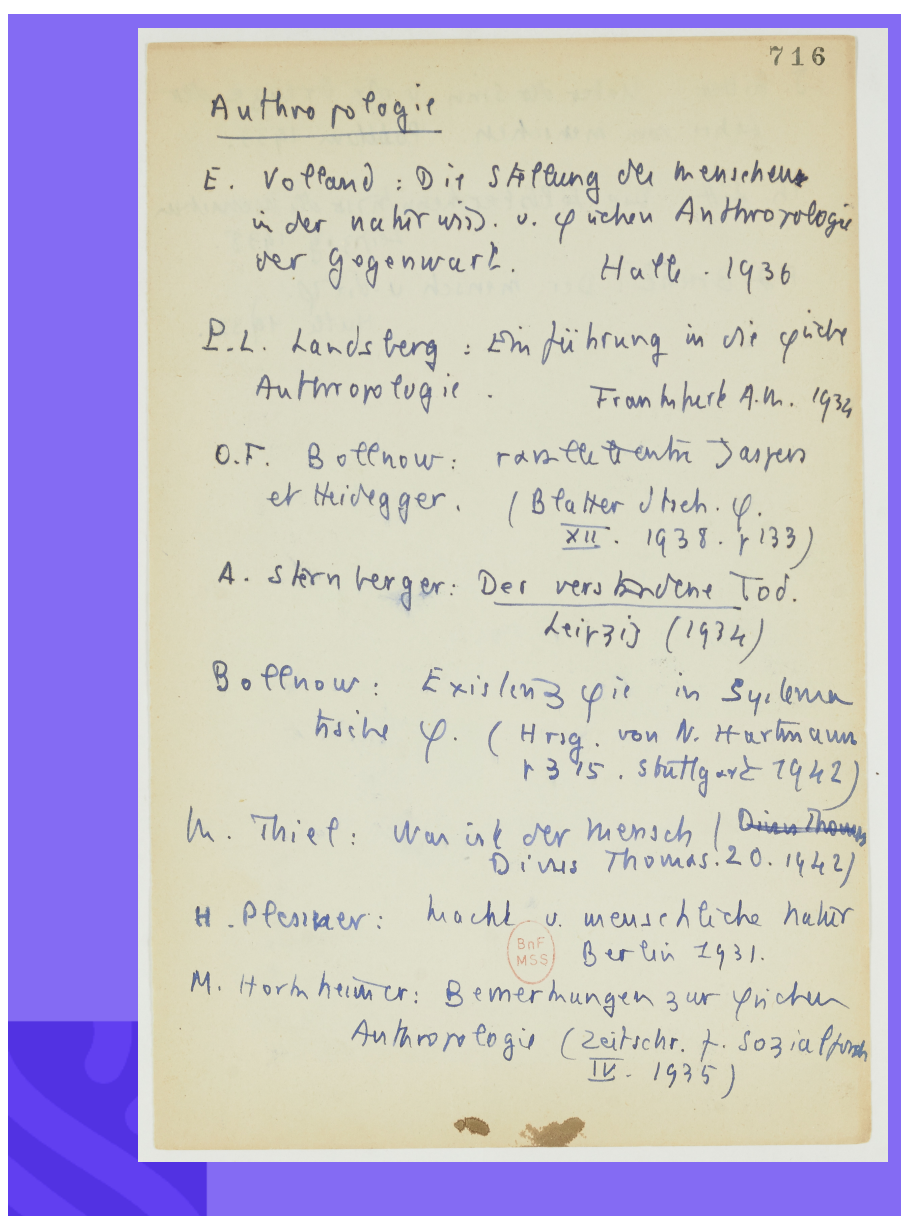 716
Anthropologie
E. Volland : Die Stellung des menschen
in der naturwiss. u. φichen Anthropologie
der Gegenwart. Halle . 1936
P.L. Landsberg : Einführung in die φiche
Anthropologie . Frankfurt A.M. 1934
O.F. Bollnow : Jaspers
et Heidegger. (Blatter dtsch. φ.
XII. 1938. p 133)
A. Sternberger : Der verstandene Tod.
Leipzig (1934)
Bollnow : Existenz φie in Systema
tische φ. (Hrsg. von N. Hartmann
p 315 . Stuttgard 1942)
M. Thiel : Was ist der mensch ( Divus Thomas
Divus Thomas. 20. 1942)
H. Plessner : Macht u. menschliche natur
BnF
MSS
Berlin 1931.
M. Horkheimer : Bemerkungen zur φichen
Anthropologie (Zeitschr. f. Sozialforsch
IV. 1935)